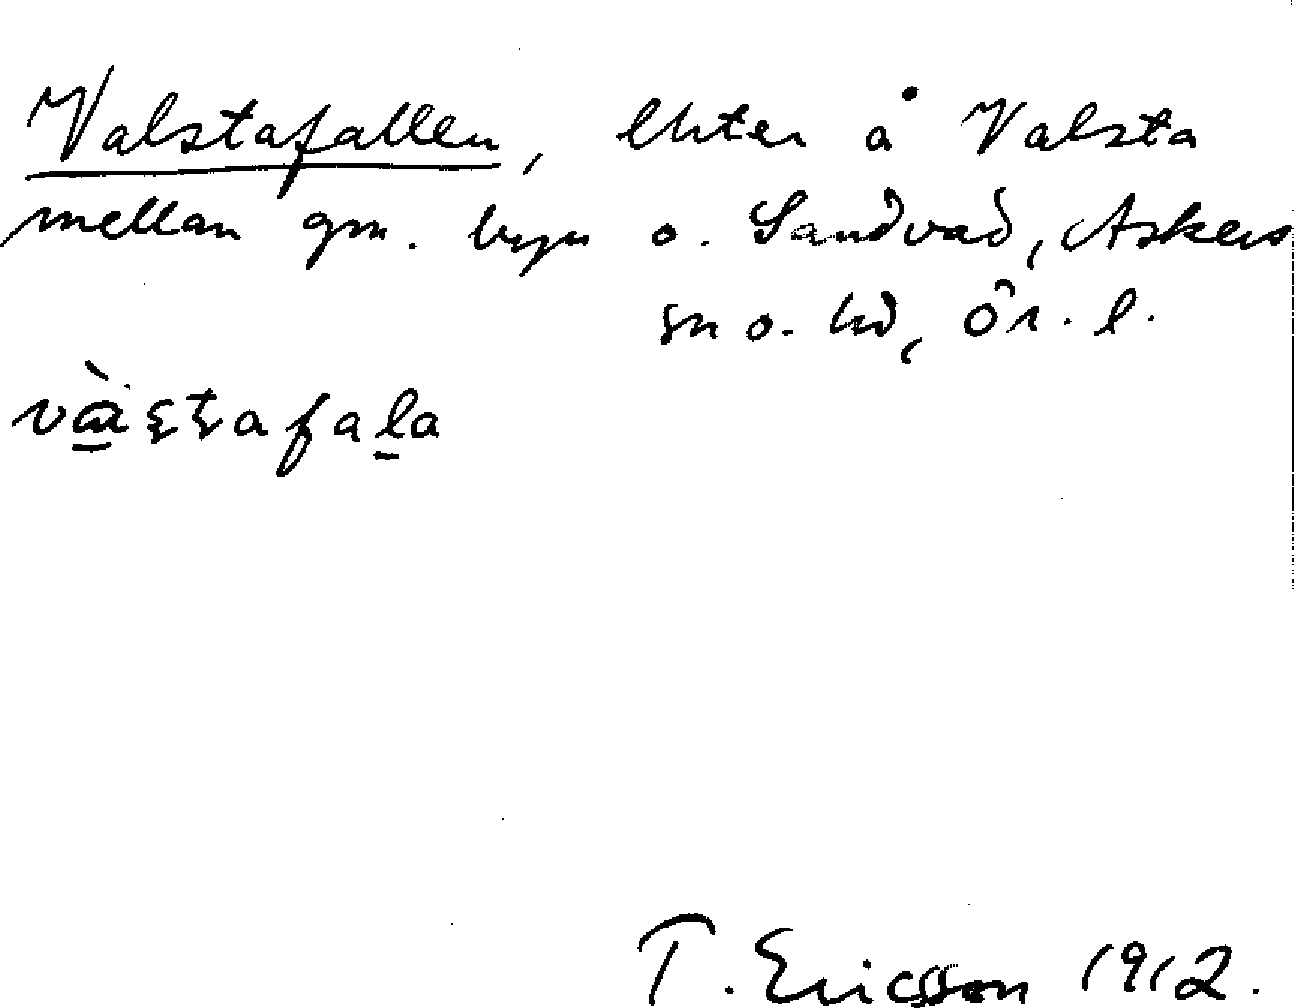 Valstafallen, slåtter å Valsta
mellan gm. byn o. Sandvad, Askers
sn o. hd, Ör. l.
T. Ericsson 1912.